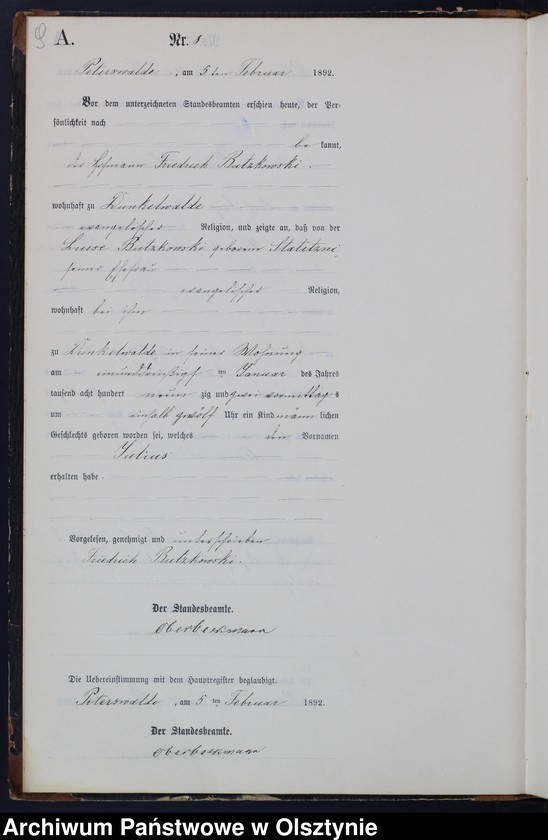 9. A.
Nr. 8
Peterswalde, am 5 ten Februar 1892.
Vor dem unterzeichneten Standesbeamten erschien heute, der Per-
sönlichkeit nach
be kannt,
der Hofmann Friedrich Butzkowski.
wohnhaft zu Dunkelwalde
evangelischer Religion, und zeigte an, daß von der
Butzkowski geborene
seiner Ehefrau
evangelischer Religion,
wohnhaft bei ihm
zu Dunkelwalde in seiner Wohnung
am einunddreißigsten ten Januar des Jahres
tausend acht hundert neun zig und zwei vormittag s
um einhalb zwölf Uhr ein Kind männ lichen
Geschlechts geboren worden sei, welches den Vornamen
Julius
erhalten habe
Vorgelesen, genehmigt und unterschrieben
Friedrich Butzkowski.
Der Standesbeamte.
Oberbeckmann
Die Uebereinstimmung mit dem Hauptregister beglaubigt.
Peterswalde, am 5 ten Februar 1892.
Der Standesbeamte.
Oberbeckmann
Archiwum Państwowe w Olsztynie